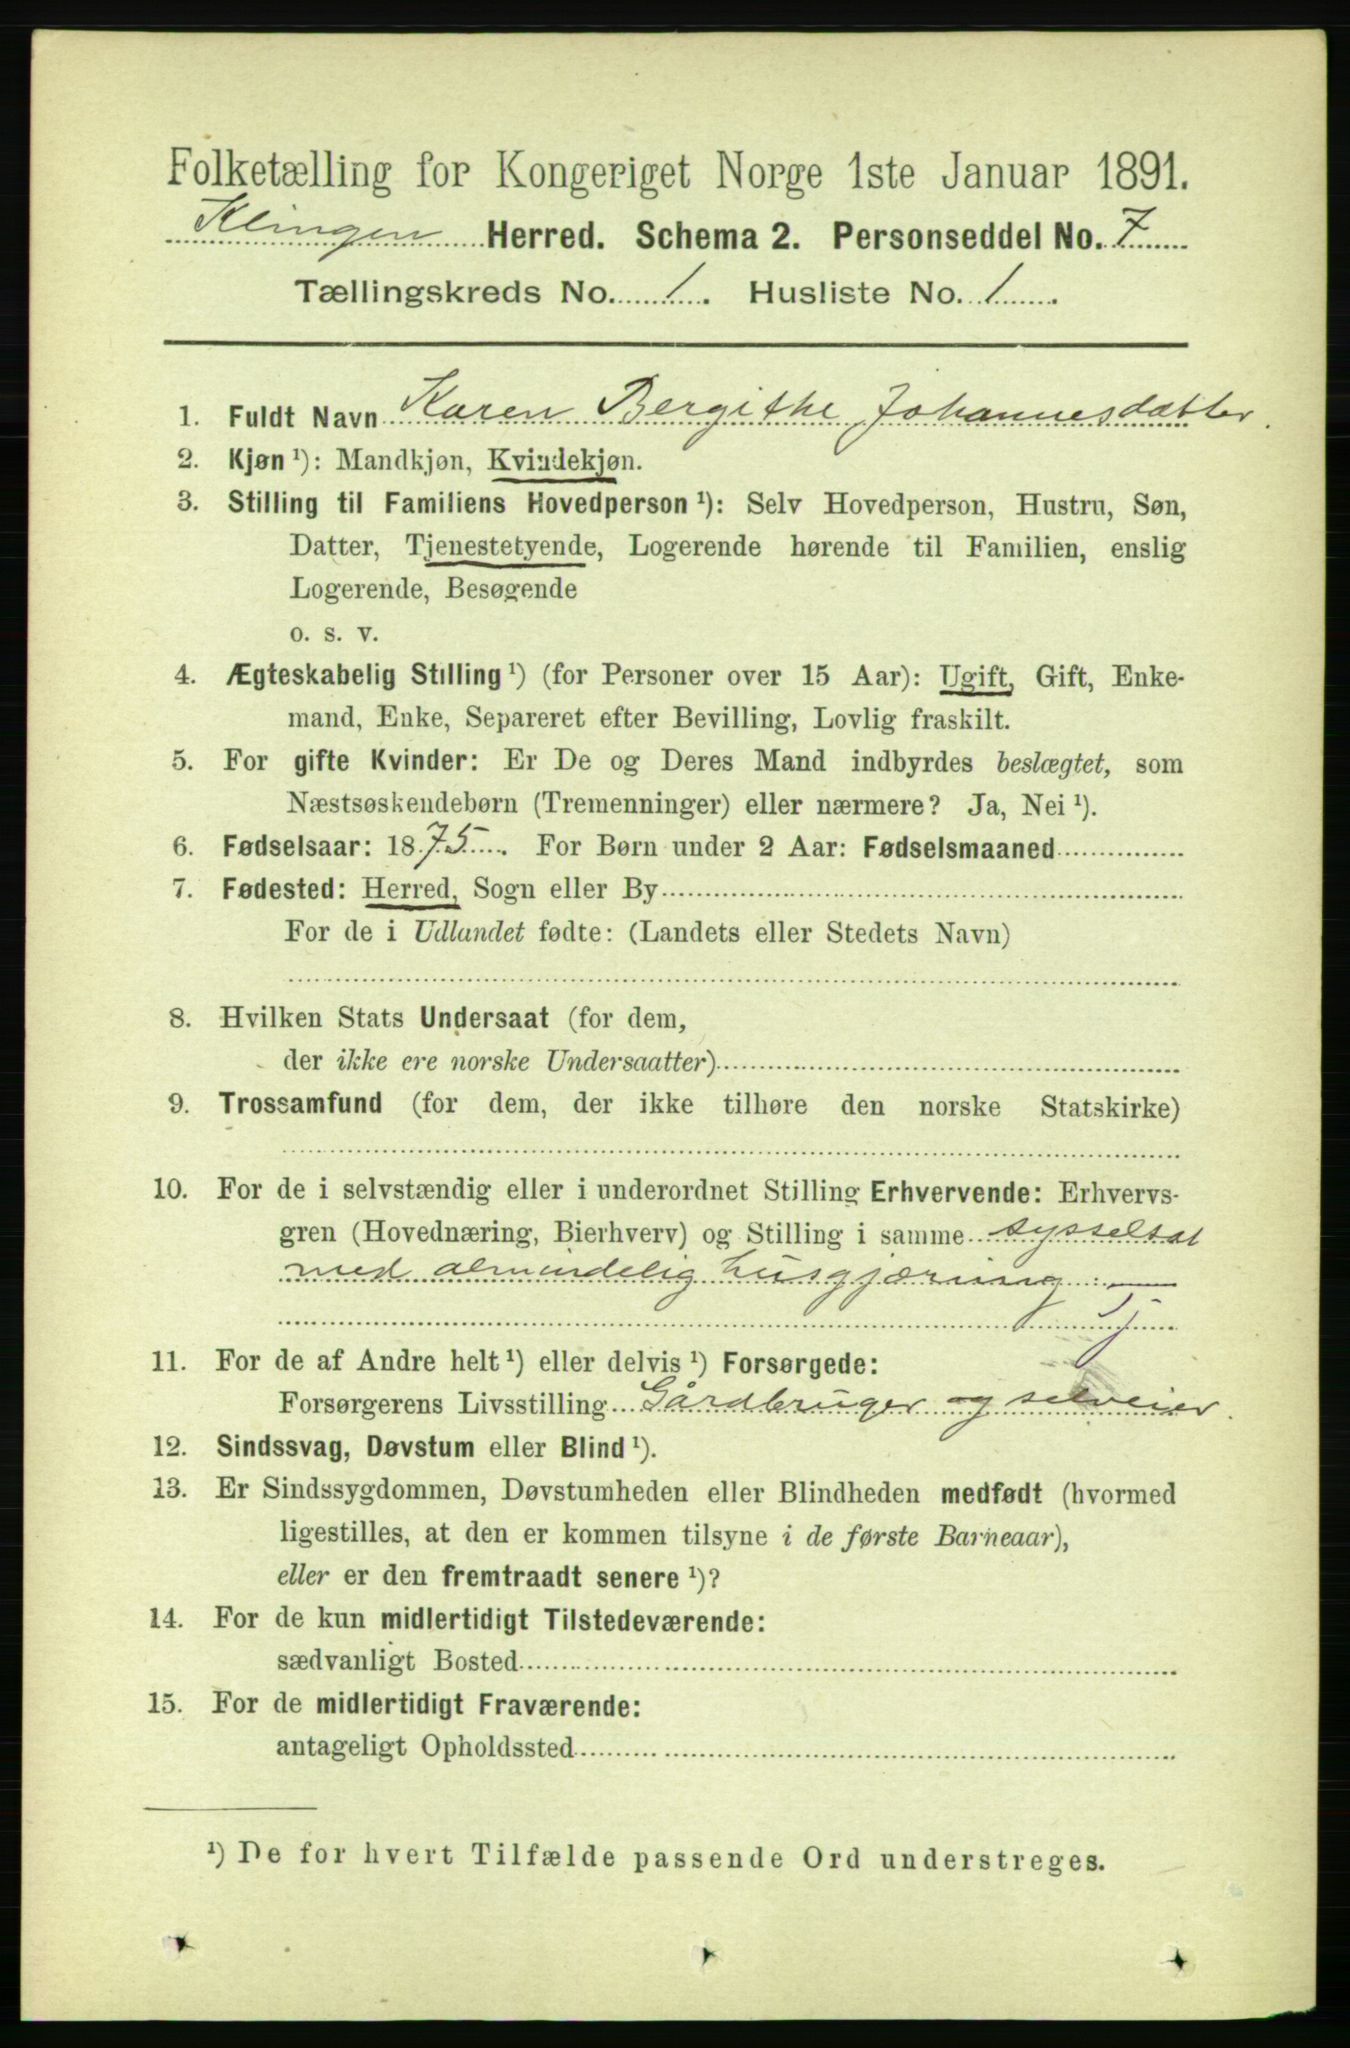 Folketælling for Kongeriget Norge 1ste Januar 1891.
Klingen Herred. Schema 2. Personseddel No. 7
Tællingskreds No. 1. Husliste No. 1.
1. Fuldt Navn Karen Bergithe Johannesdatter.
2. Kjøn ¹): Mandkjøn, Kvindekjøn.
3. Stilling til Familiens Hovedperson ¹): Selv Hovedperson, Hustru, Søn,
Datter, Tjenestetyende, Logerende hørende til Familien, enslig
Logerende, Besøgende
o. s. v.
4. Ægteskabelig Stilling ¹) (for Personer over 15 Aar): Ugift, Gift, Enke-
mand, Enke, Separeret efter Bevilling, Lovlig fraskilt.
5. For gifte Kvinder: Er De og Deres Mand indbyrdes beslægtet, som
Næstsøskendebørn (Tremenninger) eller nærmere? Ja, Nei ¹).
6. Fødselsaar: 1875. For Børn under 2 Aar: Fødselsmaaned
7. Fødested: Herred, Sogn eller By
For de i Udlandet fødte: (Landets eller Stedets Navn)
8. Hvilken Stats Undersaat (for dem,
der ikke ere norske Undersaatter)
9. Trossamfund (for dem, der ikke tilhøre den norske Statskirke)
10. For de i selvstændig eller i underordnet Stilling Erhvervende: Erhvervs-
gren (Hovednæring, Bierhverv) og Stilling i samme sysselsat
med almindelig husgjærning
Tj
11. For de af Andre helt ¹) eller delvis ¹) Forsørgede:
Forsørgerens Livsstilling Gårdbruger og selveier.
12. Sindssvag, Døvstum eller Blind ¹).
13. Er Sindssygdommen, Døvstumheden eller Blindheden medfødt (hvormed
ligestilles, at den er kommen tilsyne i de første Barneaar),
eller er den fremtraadt senere ¹)?
14. For de kun midlertidigt Tilstedeværende:
sædvanligt Bosted
15. For de midlertidigt Fraværende:
antageligt Opholdssted
¹) De for hvert Tilfælde passende Ord understreges.